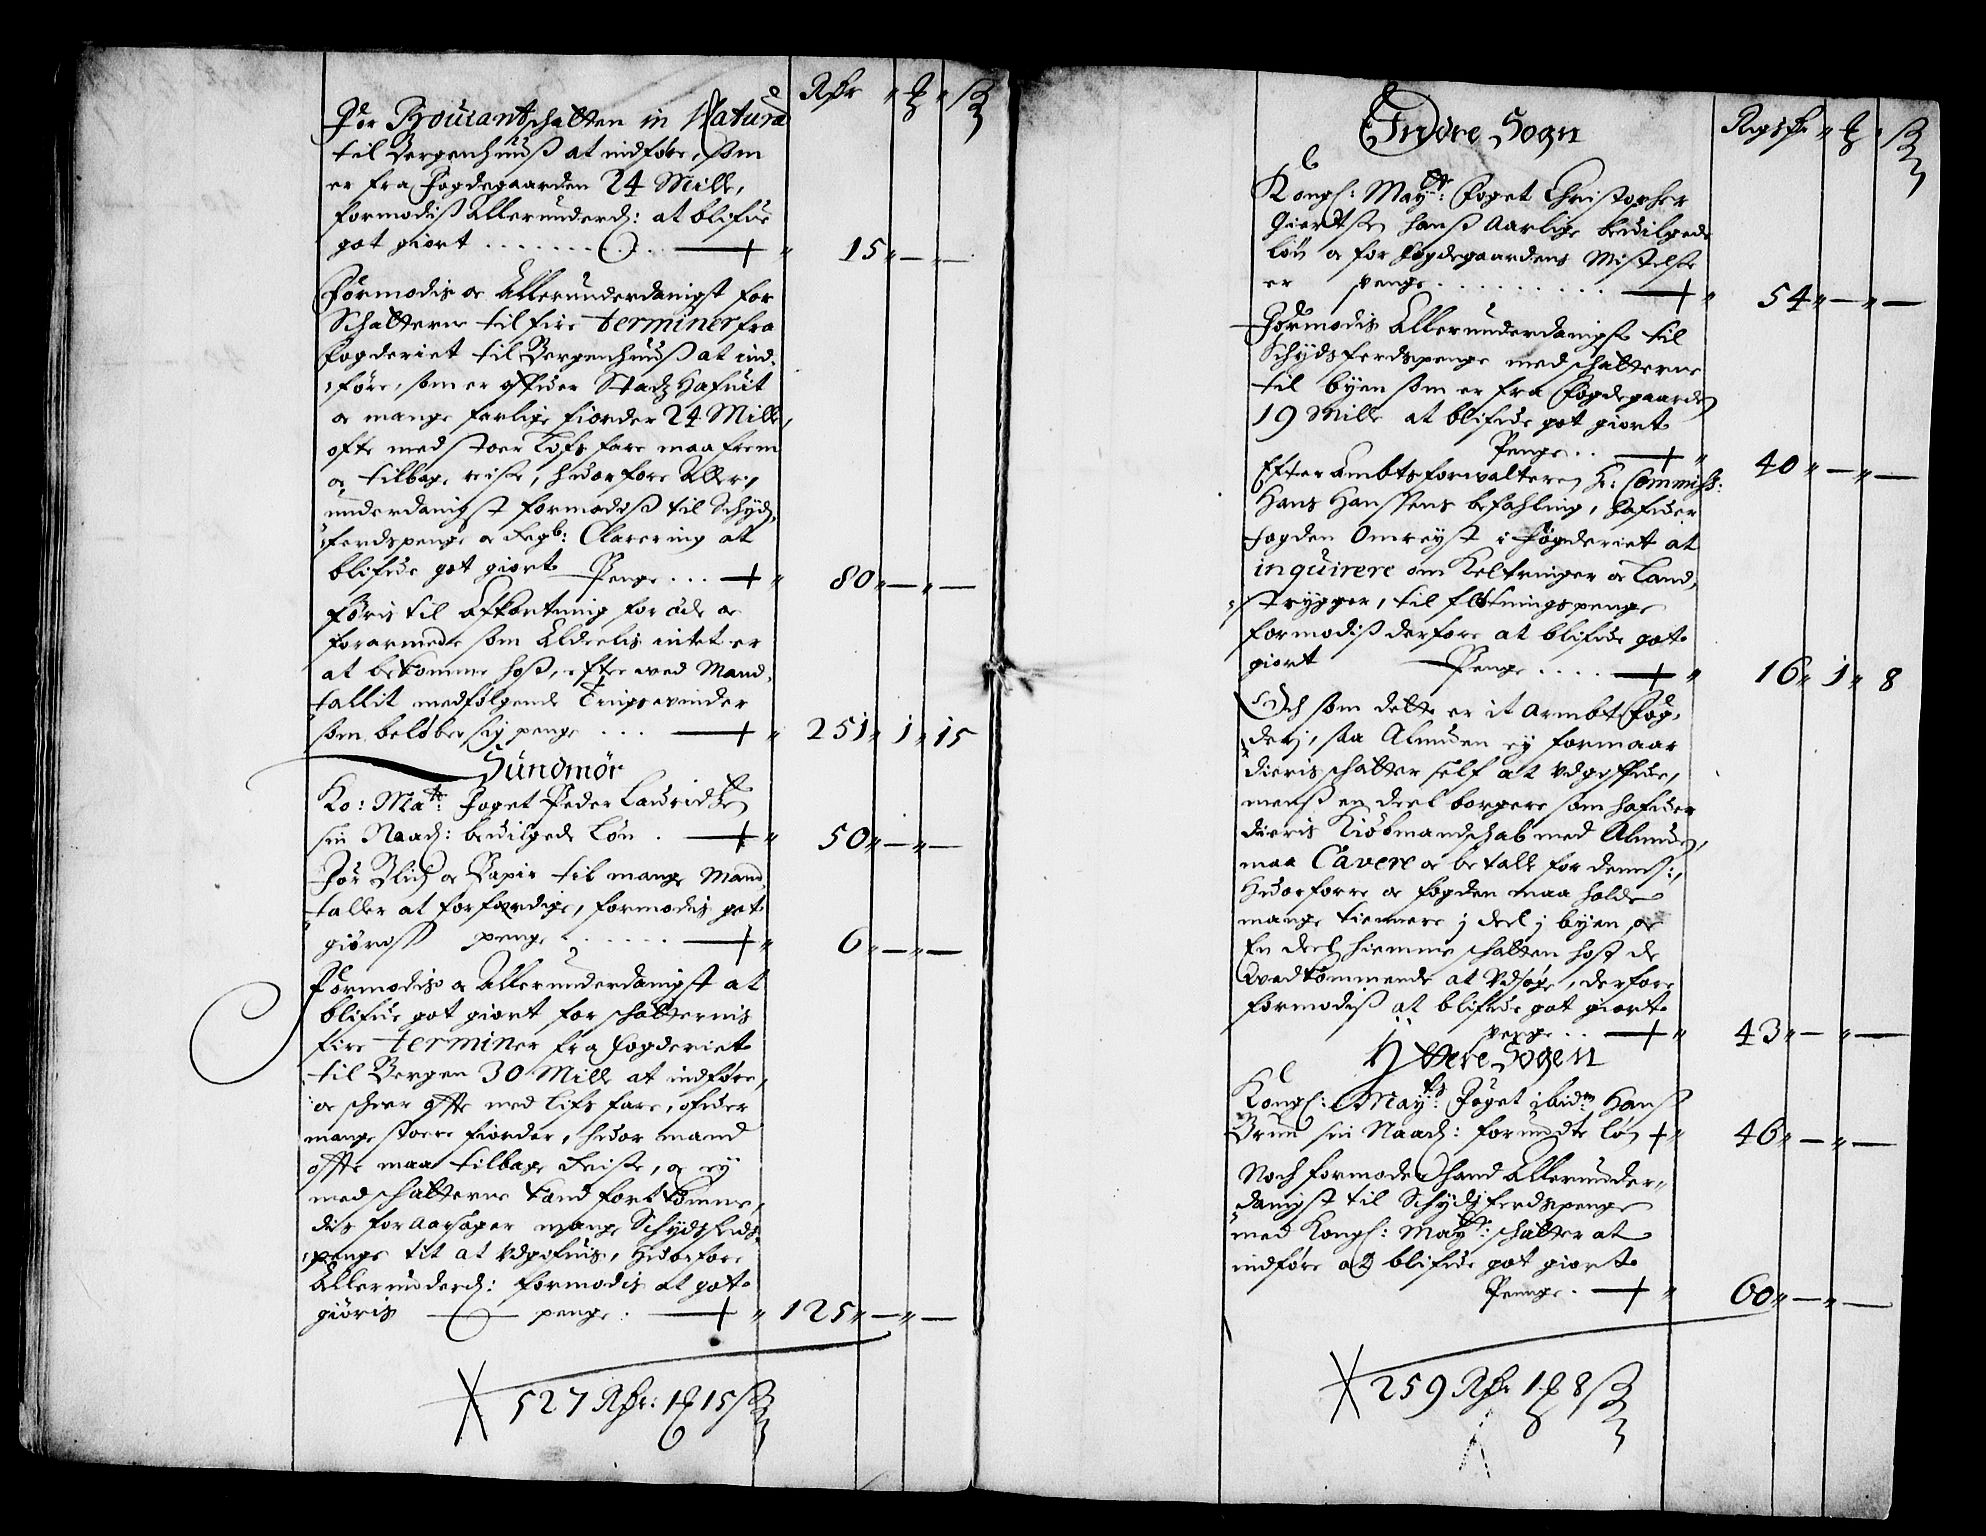 Rdr " ₰ " ß
For Prouiantschatten in Natura
til Bergenhuuß at indføre, som
er fra Fogdegaarden 24 Mille,
formodiß Allerunderd: at blifue
got giort . . . . . . . . . . " 15 " — " —
Formodis oc Allerunderdanigst for
Schatterne til fire terminer fra
fogderiet til Bergenhuuß at ind-
føre, som er offuer Stadz Hafuit
oc mange farlige fiorder 24 Mille,
ofte med stoer Lifs fare maa frem
oc tilbage reise, huorfore Aller-
underdanigst formodiß til Schyds
ferdspenge oc Regb: Clarering at
blifue got giort Penge . . . " 80 " — " —
Føris til Afkortning for øde oc
forarmede som Aldeelis intet er
at bekomme hoß, efter ved Mand-
tallit medfølgende Tingsvinder
som beløber sig penge . . . " 251 " 1 " 15
Sundmör
Ko: Maᵗˢ: Foget Peder Lauridtzen
sin Naad: beuilgede Løn . " 50 " — " —
For Blich oc Papir til mange Mand-
taller at forferdige, formodis got
giøreß penge . . . . . . " 6 " — " —
Formodis oc Allerunderdanigst at
blifue got giort for schatternis
fire terminer fra Fogderiet
til Bergen 30 Mille at indføre,
oc scheer offte med Lifs fare, ofuer
mange stoere fiorder, huor mand
offte maa tilbage Reise, oc ey
med schatterne kand fort komme,
der for aarsager mange Schydsferds-
penge tit at Vdgifuis, Huorfore
Allerunderd: formodis at got
giöris penge . " 125 " — " —
527 Rdr: 1 ₰ 15 ß
Indre Sogn
Rigsdr " ₰ " ß
Kongl: Mayᵗˢ: Foget Christopher
Giertsen hanß Aarlige beuilgede
Løn oc for fogdegaardens Mistelse
er penge . . . . . . . . . " 54 " — " —
Formodis Allerunderdanigst til
Schydsferdspenge med schatterne
til byen som er fra Fogdegaarden
19 Mille at blifue got giort
Penge . . " 40 " — " —
Efter Ambtsforwalteren H: Commiss:
Hans Hanssens befahling, hafuer
fogden Omreyst i Fögderiet at
inquirere om Keltringer oc Land-
strygger, til flötningspenge
formodiß derfore at blifue got
giort Penge . . . . " 16 " 1 " 8
Och som dette er it Armbt Fög-
derj, saa Almuen ey formaar
dieris schatter self at Vdgiffue,
menß en deel borgere som hafuer
dieris Kiöbmandschab med Almuen,
maa Cavere oc betalle for denns:,
Huorforre oc fogden maa holde
mange tiennere j deel j byen, oc
En deel hiemme schatten hoß de
Vvedkommende at Vdsøge, derfore
formodiß at blifue got giort
penge . . " 43 " — " —
Yttere Sogen
Kongl: Mayᵗˢ: Foget ibidᵐ Hans
Bruu sin Naad: forundte løn " 46 " — " —
Noch formoder hand Allerunder-
danigst til Schydsferdspenge
med Kongl: Mayᵗˢ: schatter at
indføre at blifue got giort
Penge . " 60 " — " —
259 Rdr 1 ₰ 8 ß